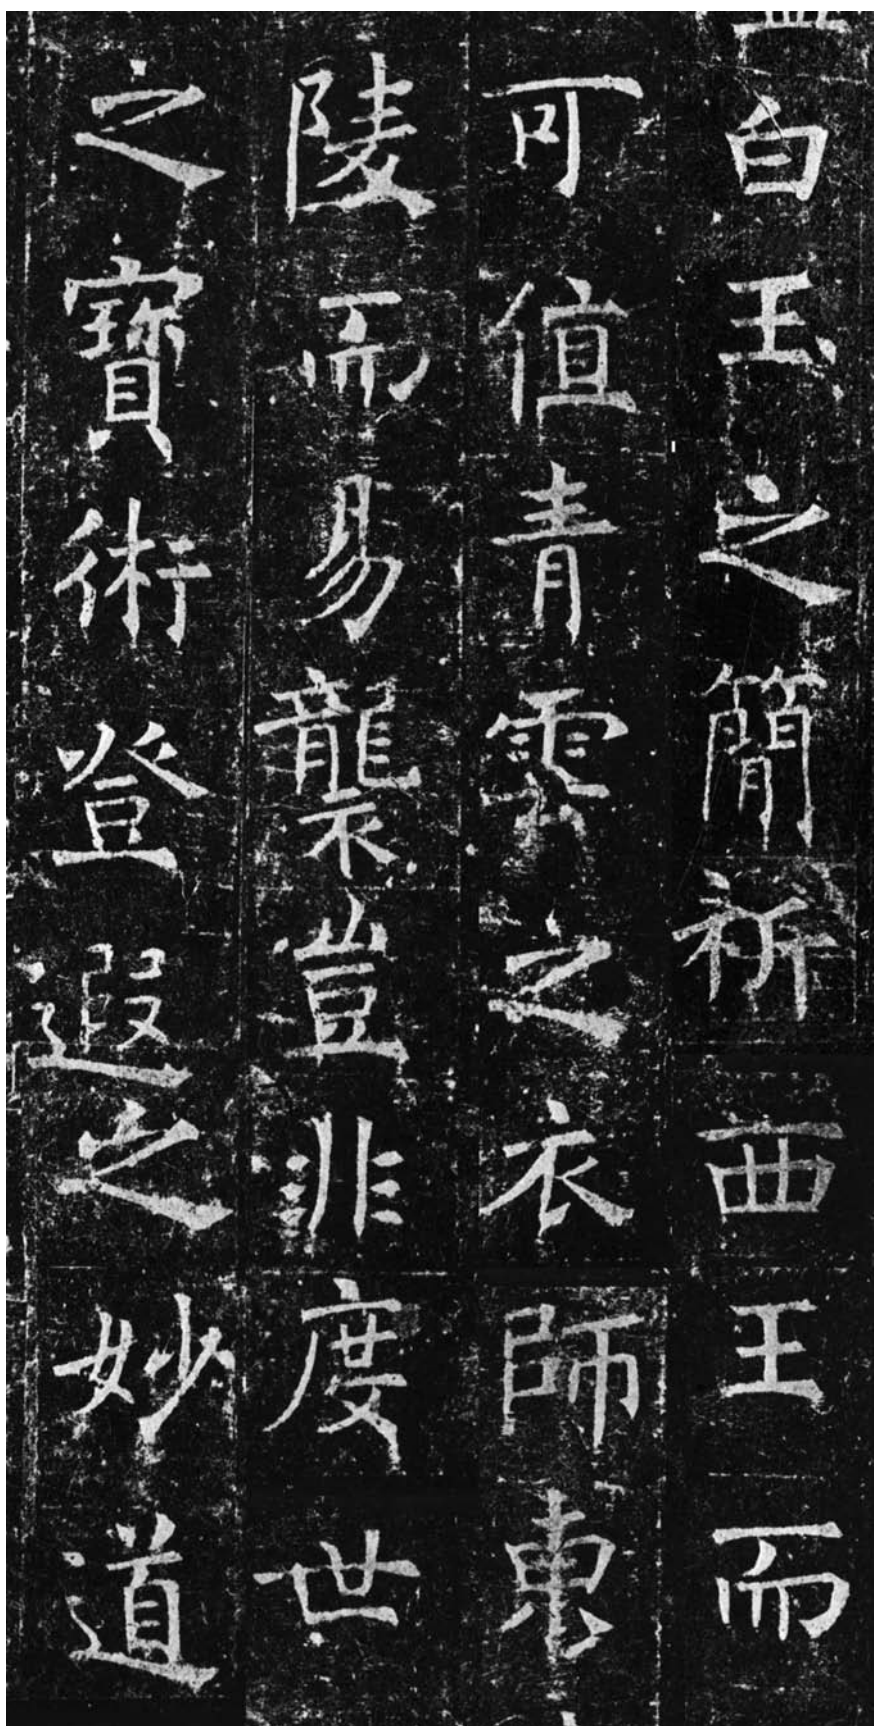 白玉之簡祈西王而
可值青之衣師東
陵而易襲豈非度世
之寳術登遐之妙道